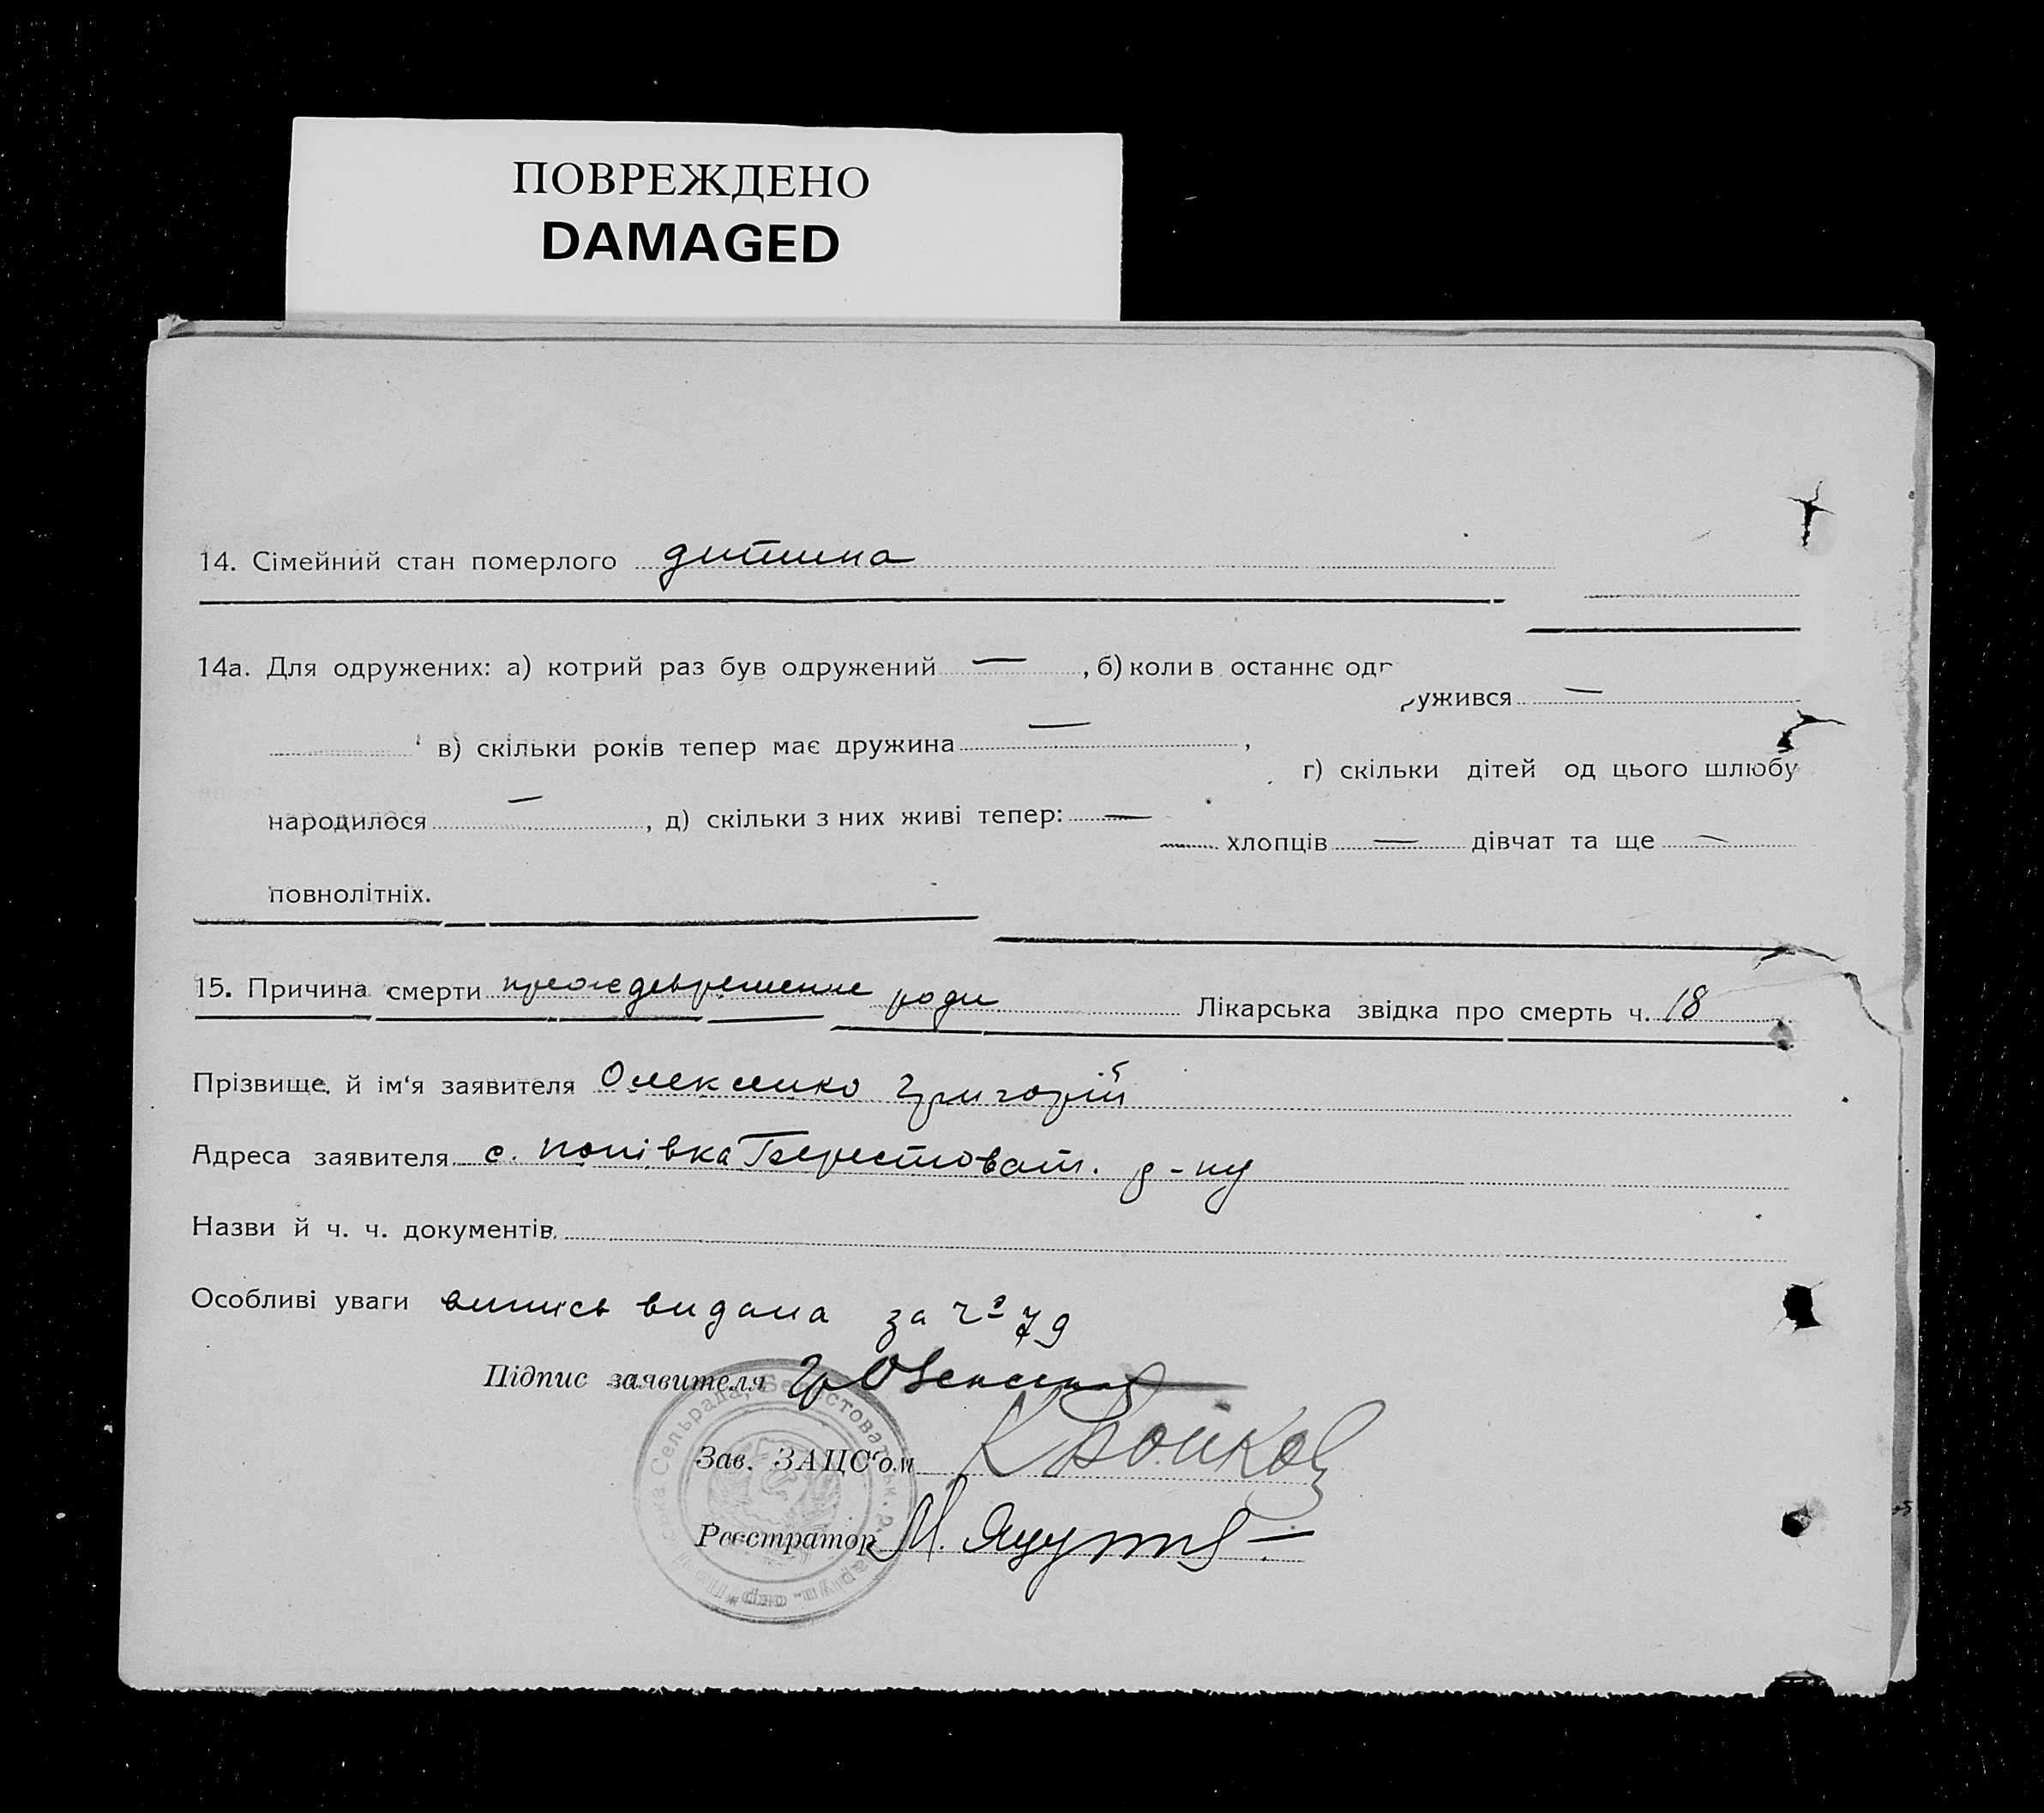 ПОВРЕЖДЕНО
DAMAGED
14. Сімейний стан померлого дитина
14а. Для одружених: а) котрий раз був одружений — , б) коли в останнє одружився —
в) скільки років тепер має дружина — , г) скільки дітей од цього шлюбу
народилося — , д) скільки з них живі тепер: — хлопців — дівчат та ще —
повнолітніх.
15. Причина смерти преждевременне роди Лікарська звідка про смерть ч. 18
Прізвище й ім'я заявителя Олексенко Григорій
Адреса заявителя с. Попівка Берестоват. р-ну
Назви й ч. ч. документів
Особливі уваги випись видана за № 79
Підпис заявителя Гр Олексенко
Зав. ЗАЦС'ом К Бойко
Реєстратор М.
Сельрада, Берестоватськ. р.